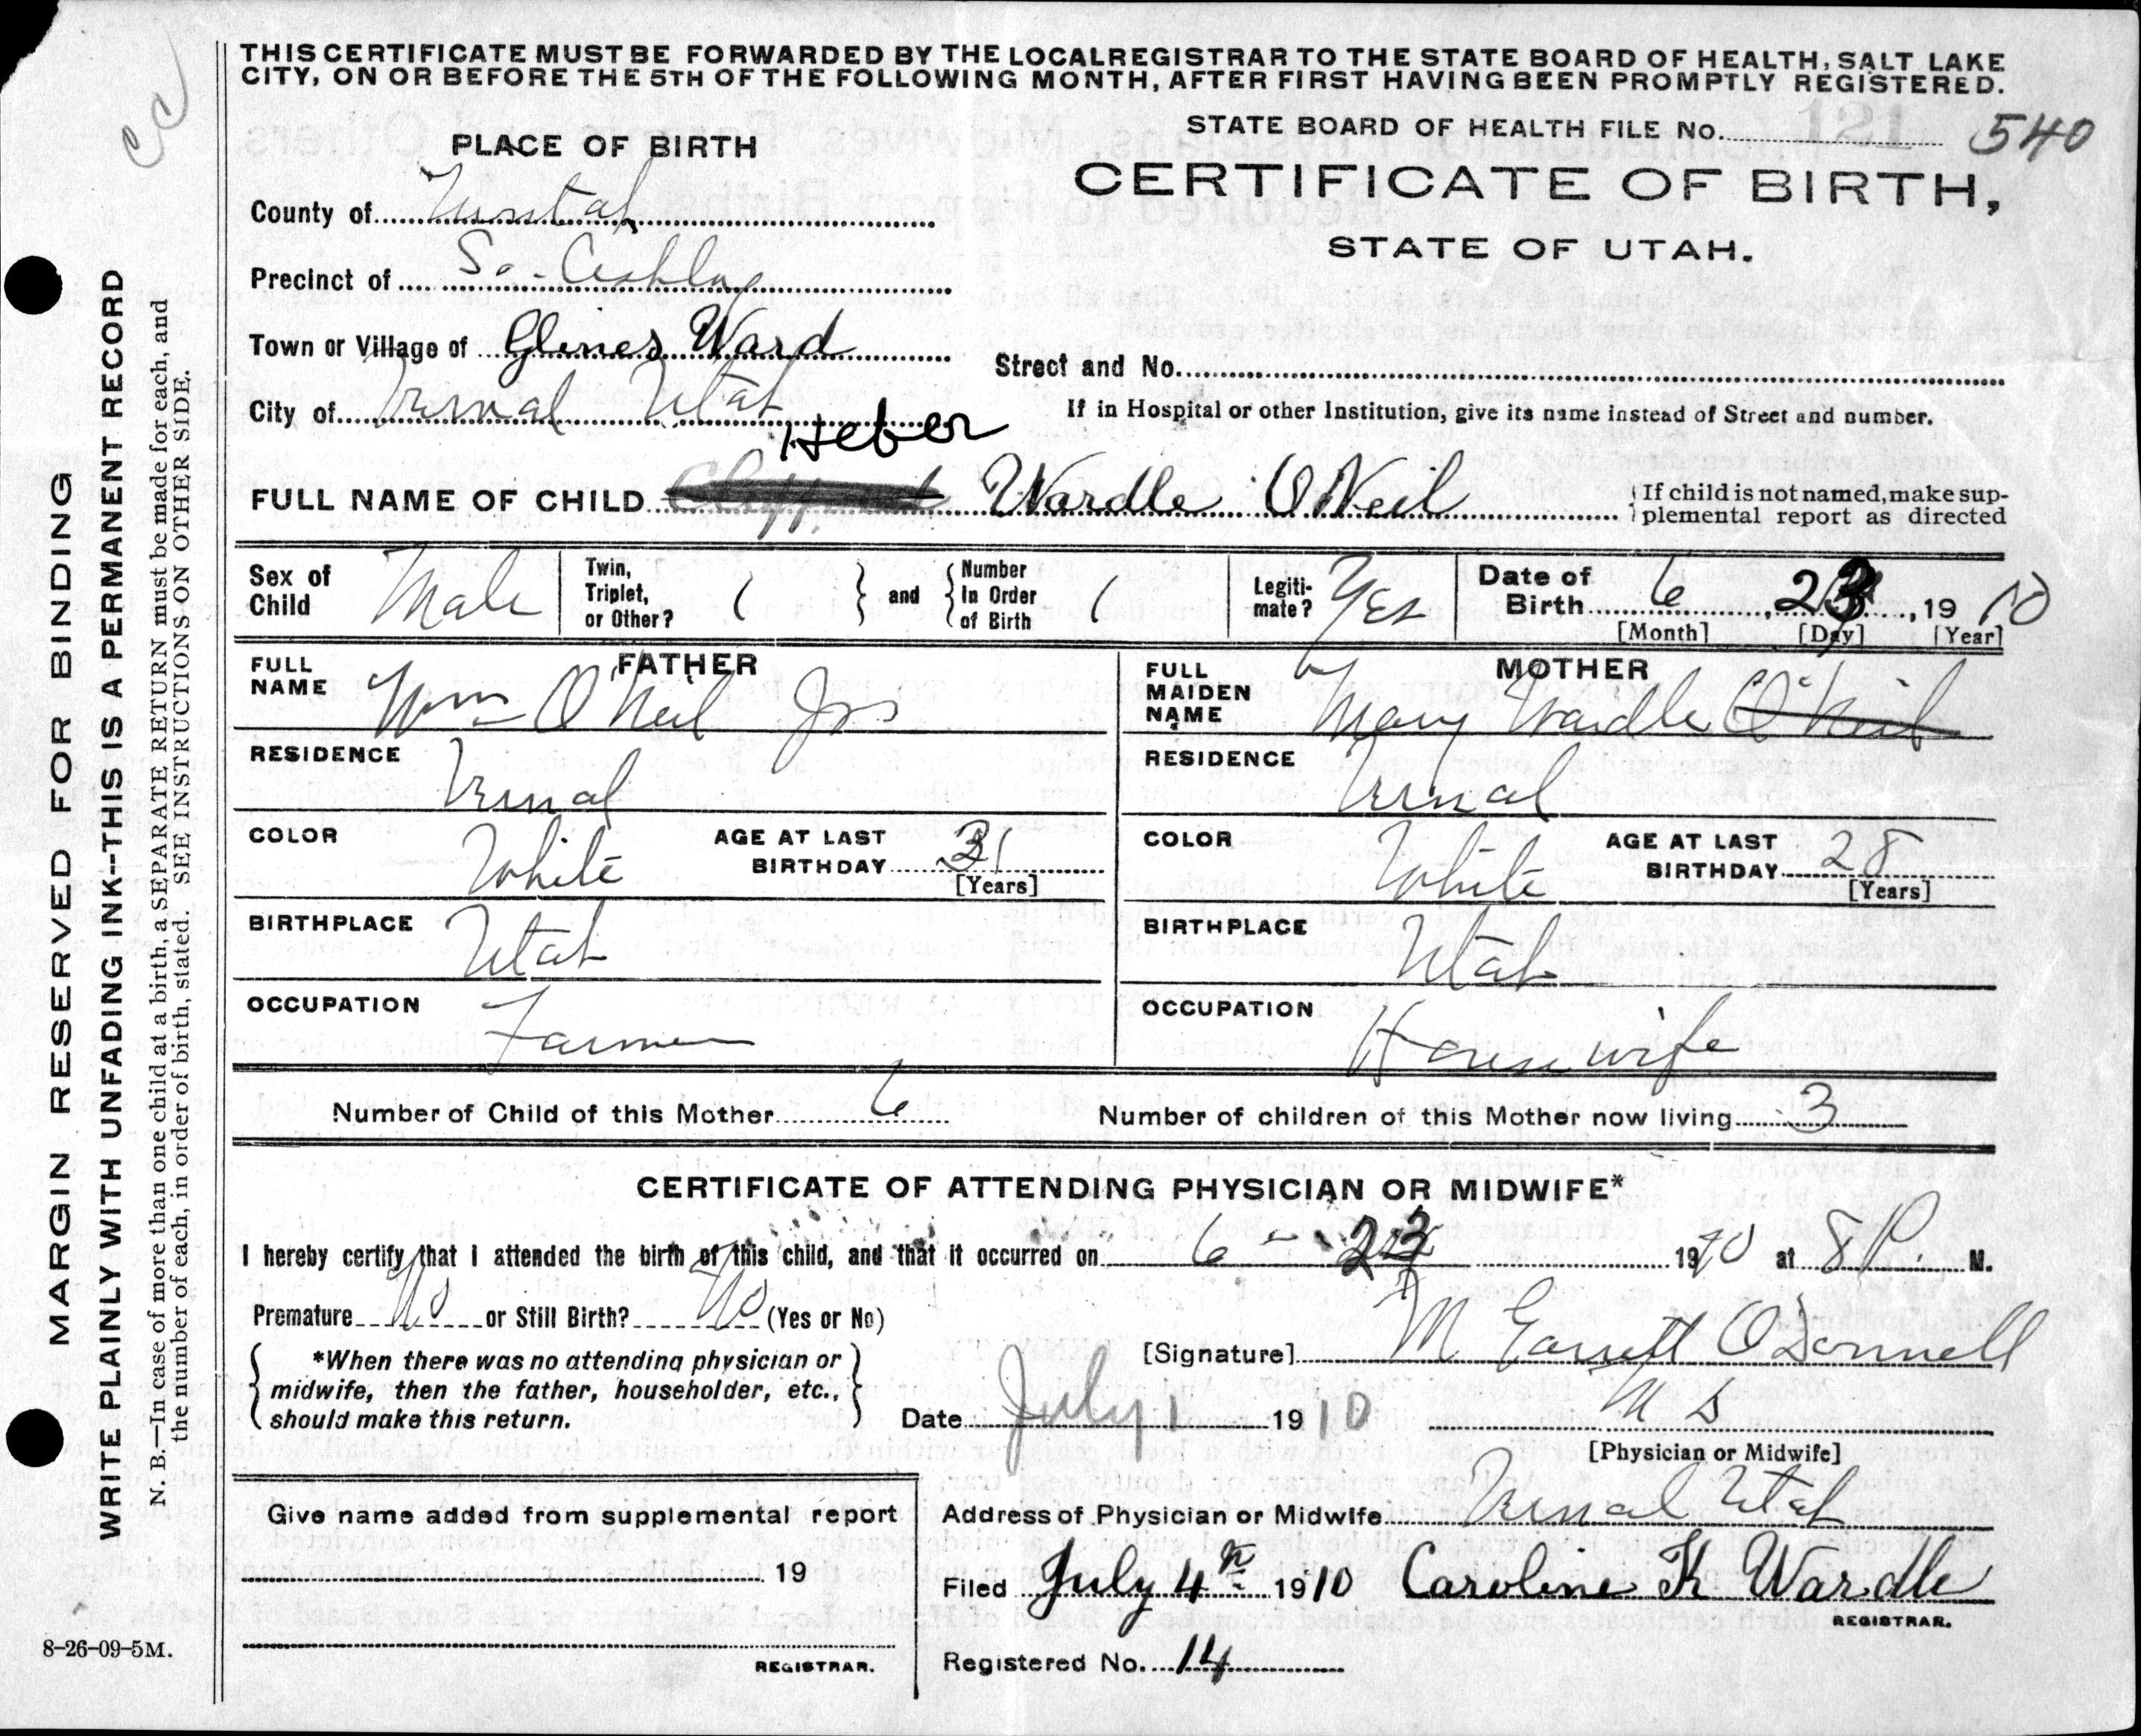 THIS CERTIFICATE MUST BE FORWARDED BY THE LOCAL REGISTRAR TO THE STATE BOARD OF HEALTH, SALT LAKE
CITY, ON OR BEFORE THE 5TH OF THE FOLLOWING MONTH, AFTER FIRST HAVING BEEN PROMPTLY REGISTERED.
STATE BOARD OF HEALTH FILE No. 121 540
PLACE OF BIRTH
CERTIFICATE OF BIRTH,
STATE OF UTAH.
County of Uintah
Precinct of So. Ashley
Town or Village of Glines Ward
Street and No.
City of Vernal Utah
If in Hospital or other Institution, give its name instead of Street and number.
Heber
FULL NAME OF CHILD Wardle O'Neil
If child is not named, make sup-
plemental report as directed
Sex of Child Male
Twin, Triplet, or Other? 1 and Number In Order of Birth 1
Legiti-mate? Yes
Date of Birth 6, 23, 1910
[Month] [Day] [Year]
FATHER
FULL NAME Wm O'Neil Jr
RESIDENCE Vernal
COLOR White AGE AT LAST BIRTHDAY 31
[Years]
BIRTHPLACE Utah
OCCUPATION Farmer
MOTHER
FULL MAIDEN NAME Mary Wardle O'Neil
RESIDENCE Vernal
COLOR White AGE AT LAST BIRTHDAY 28
[Years]
BIRTHPLACE Utah
OCCUPATION Housewife
Number of Child of this Mother 6
Number of children of this Mother now living 3
CERTIFICATE OF ATTENDING PHYSICIAN OR MIDWIFE*
I hereby certify that I attended the birth of this child, and that it occurred on 6 - 23 1910 at 8 P. M.
Premature No or Still Birth? No (Yes or No)
*When there was no attending physician or
midwife, then the father, householder, etc.,
should make this return.
[Signature] M Garrett O'Donnell
Date July 1 1910
M D
[Physician or Midwife]
Give name added from supplemental report
19
REGISTRAR.
Address of Physician or Midwife Vernal Utah
Filed July 4th 1910 Caroline K Wardle
REGISTRAR.
Registered No. 14
8-26-09-5M.
MARGIN RESERVED FOR BINDING
WRITE PLAINLY WITH UNFADING INK--THIS IS A PERMANENT RECORD
N. B.—In case of more than one child at a birth, a SEPARATE RETURN must be made for each, and
the number of each, in order of birth, stated. SEE INSTRUCTIONS ON OTHER SIDE.
cc